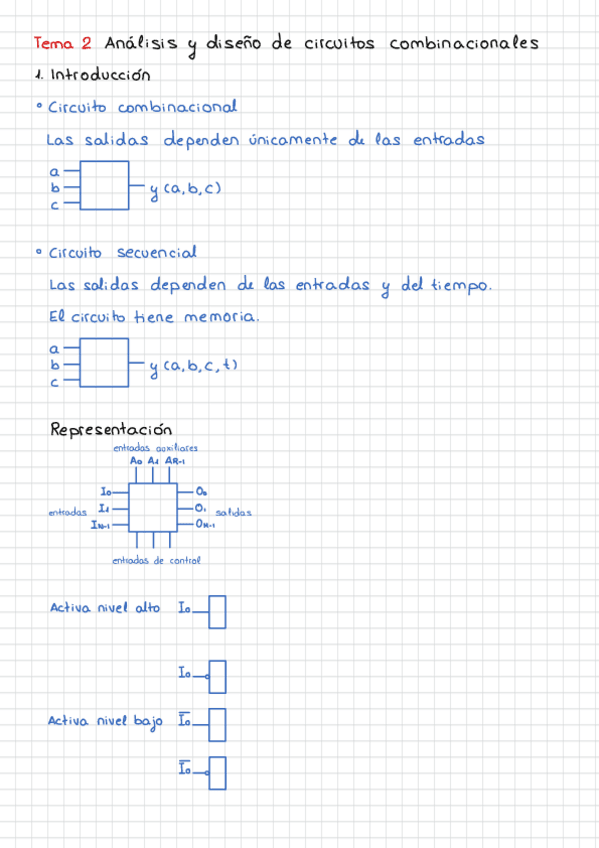 Tema 2 Análisis y diseño de circuitos combinacionales
1. Introducción
° Circuito combinacional
Las salidas dependen únicamente de las entradas
a
b
c
y (a,b,c)
° Circuito secuencial
Las salidas dependen de las entradas y del tiempo.
El circuito tiene memoria.
a
b
c
y (a,b,c,t)
Representación
entradas auxiliares
A₀ A₁ AR-1
I₀ O₀
entradas I₁ O₁ salidas
IN-1 OM-1
entradas de control
Activa nivel alto I₀
I₀
Activa nivel bajo I̅₀
I̅₀